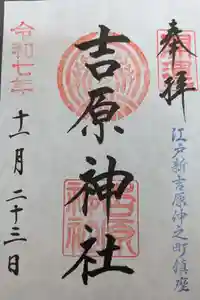 奉拝
江戸新吉原仲之町鎮座
吉原神社
令和七年
十一月二十三日